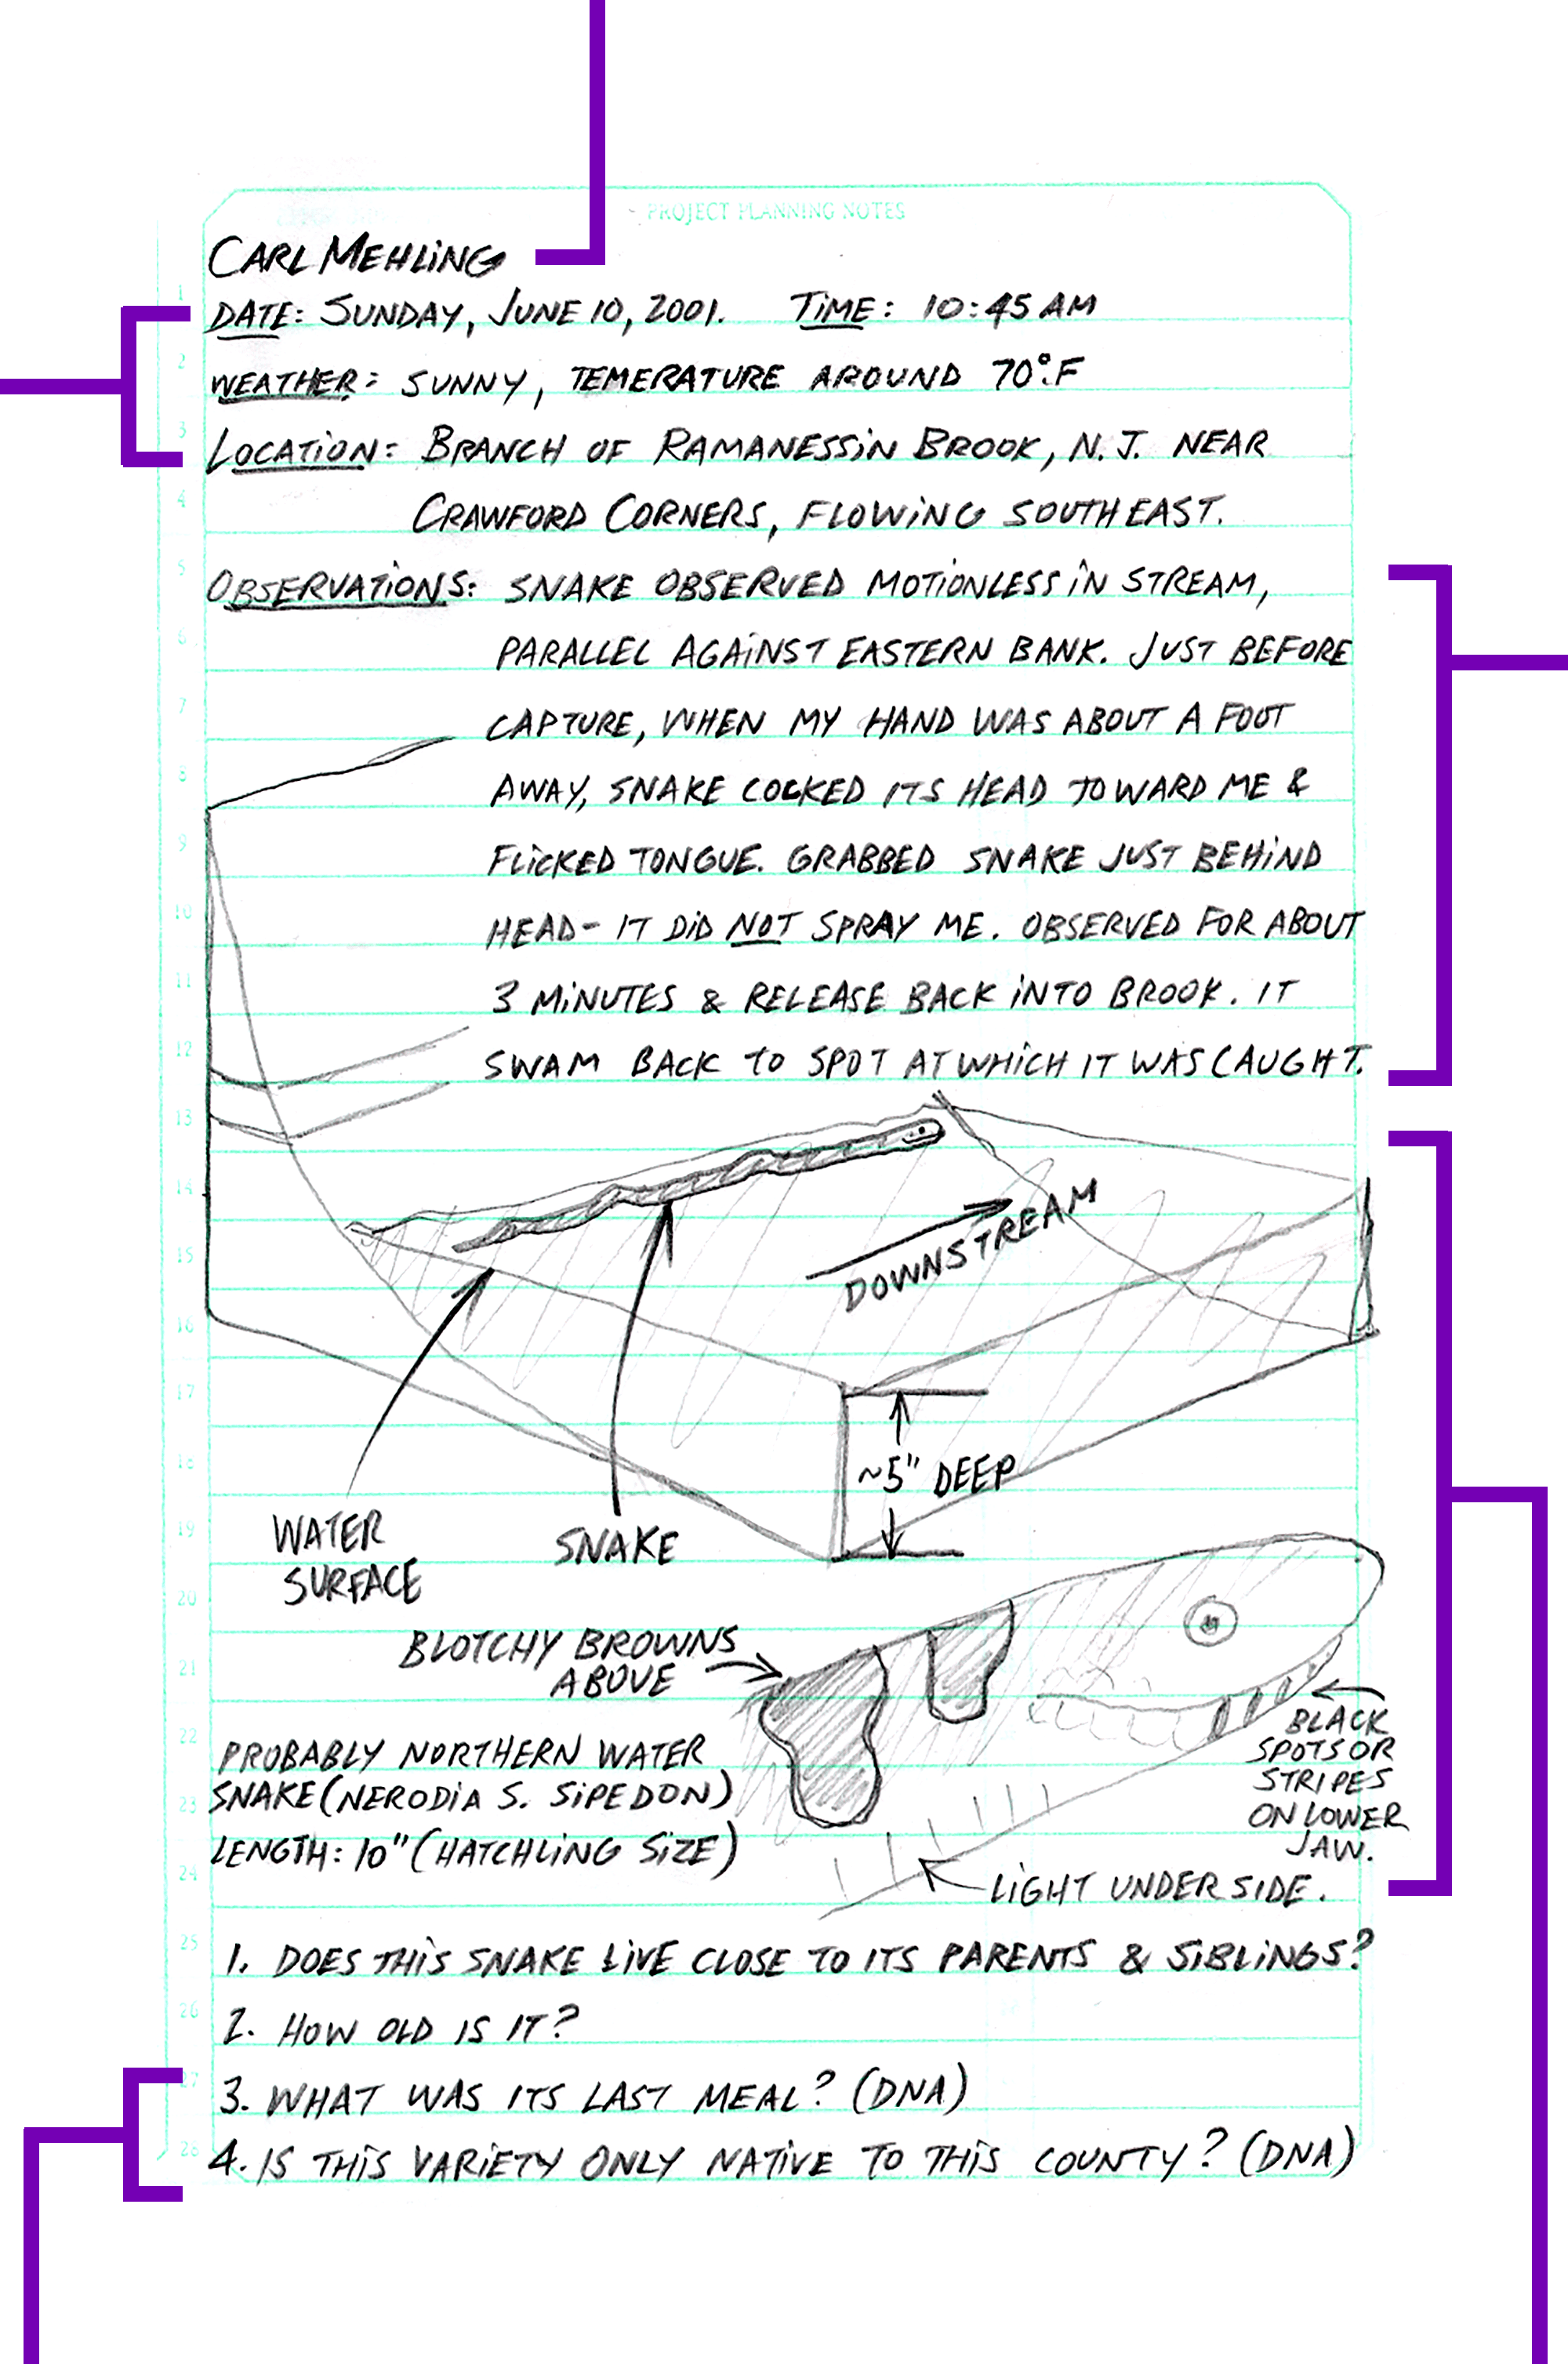 PROJECT PLANNING NOTES
CARL MEHLING
DATE: SUNDAY, JUNE 10, 2001. TIME: 10:45 AM
WEATHER: SUNNY, TEMERATURE AROUND 70°F
LOCATION: BRANCH OF RAMANESSIN BROOK, N.J. NEAR
CRAWFORD CORNERS, FLOWING SOUTHEAST.
OBSERVATIONS: SNAKE OBSERVED MOTIONLESS IN STREAM,
PARALLEL AGAINST EASTERN BANK. JUST BEFORE
CAPTURE, WHEN MY HAND WAS ABOUT A FOOT
AWAY, SNAKE COCKED ITS HEAD TOWARD ME &
FLICKED TONGUE. GRABBED SNAKE JUST BEHIND
HEAD- IT DID NOT SPRAY ME. OBSERVED FOR ABOUT
3 MINUTES & RELEASE BACK INTO BROOK. IT
SWAM BACK TO SPOT AT WHICH IT WAS CAUGHT.
DOWNSTREAM
~5" DEEP
WATER
SURFACE
SNAKE
BLOTCHY BROWNS
ABOVE
BLACK
SPOTS OR
STRIPES
ON LOWER
JAW.
PROBABLY NORTHERN WATER
SNAKE (NERODIA S. SIPEDON)
LENGTH: 10" (HATCHLING SIZE)
LIGHT UNDERSIDE.
1. DOES THIS SNAKE LIVE CLOSE TO ITS PARENTS & SIBLINGS?
2. HOW OLD IS IT?
3. WHAT WAS ITS LAST MEAL? (DNA)
4. IS THIS VARIETY ONLY NATIVE TO THIS COUNTY? (DNA)